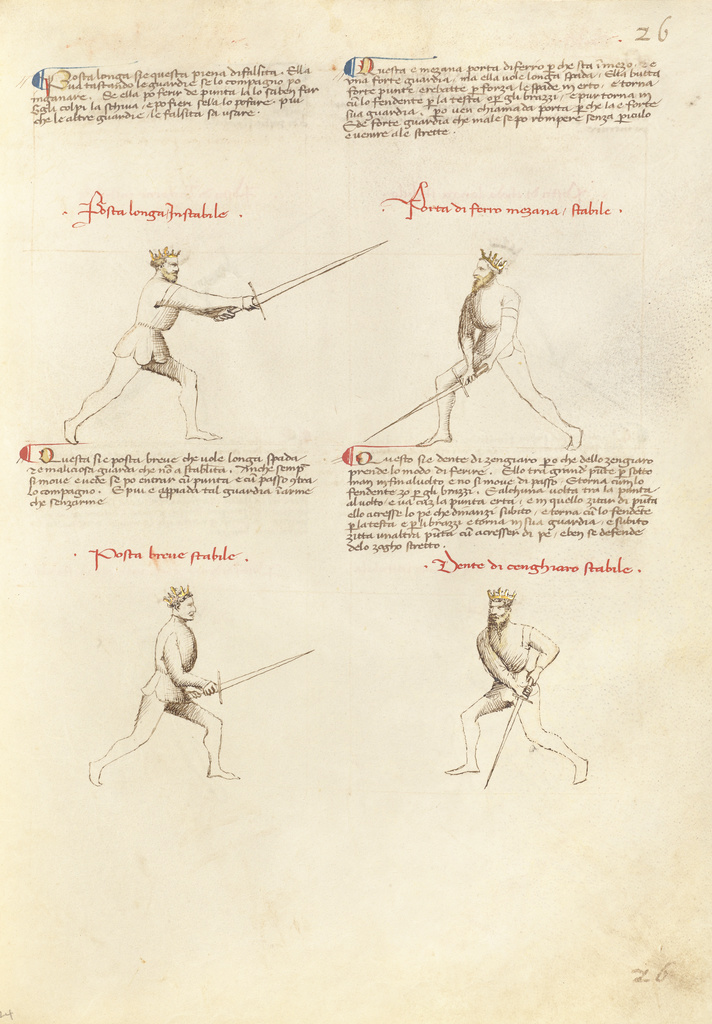 26
Posta longa sie questa piena di falsita. Ella
va tastando le guardie se lo compagno po
inganare. Se ella po ferir de punta la lo sa ben far
Egli colpi la schiva, e po fieri sela lo pofare. piu
che le altre guardie le falsita sa usare.
Posta longa Instabile.
Posta breve stabile.
Questa e mezana porta di ferro p che sta i mezo, z e
una forte guardia, ma ella vole longa spada, Ella butta
forte punte e rebatte p forza le spade in erto, e torna
cu lo fendente p la testa e p gli brazzi, e pur torna in
sua guardia. po ven chiamada porta p che la e forte
E de forte guardia che male se po rompere senza piculo
e venire ale strette.
Porta di ferro mezana, stabile.
Questa sie posta breve che vole longa spada
z e maliciosa guarda che nō a stabilita. Anche semp
si move e vede se po entrar cū punta e cū passo ɔtra
lo compagno. E piu e appiada tal guardia ī arme
che senzarme
Questo sie dente di zengiaro pō che dello zengiaro
prende lo modo di ferire. Ello tra grand pūte p sotto
man infin al volto e no si move di passo, E torna cum lo
fendente zo p gli brazzi. E alchuna volta tra la punta
al volto, e va cū la punta erta, e in quello zitar di pūta
ello acresse lo pe che dinanzi subito, e torna cū lo fendēte
p la testa e p li brazzi e torna in sua guardia, e subito
zitta unaltra pūta cū acresser di pe, e ben se defende
delo zogho stretto.
Dente di cenghiaro stabile.
26